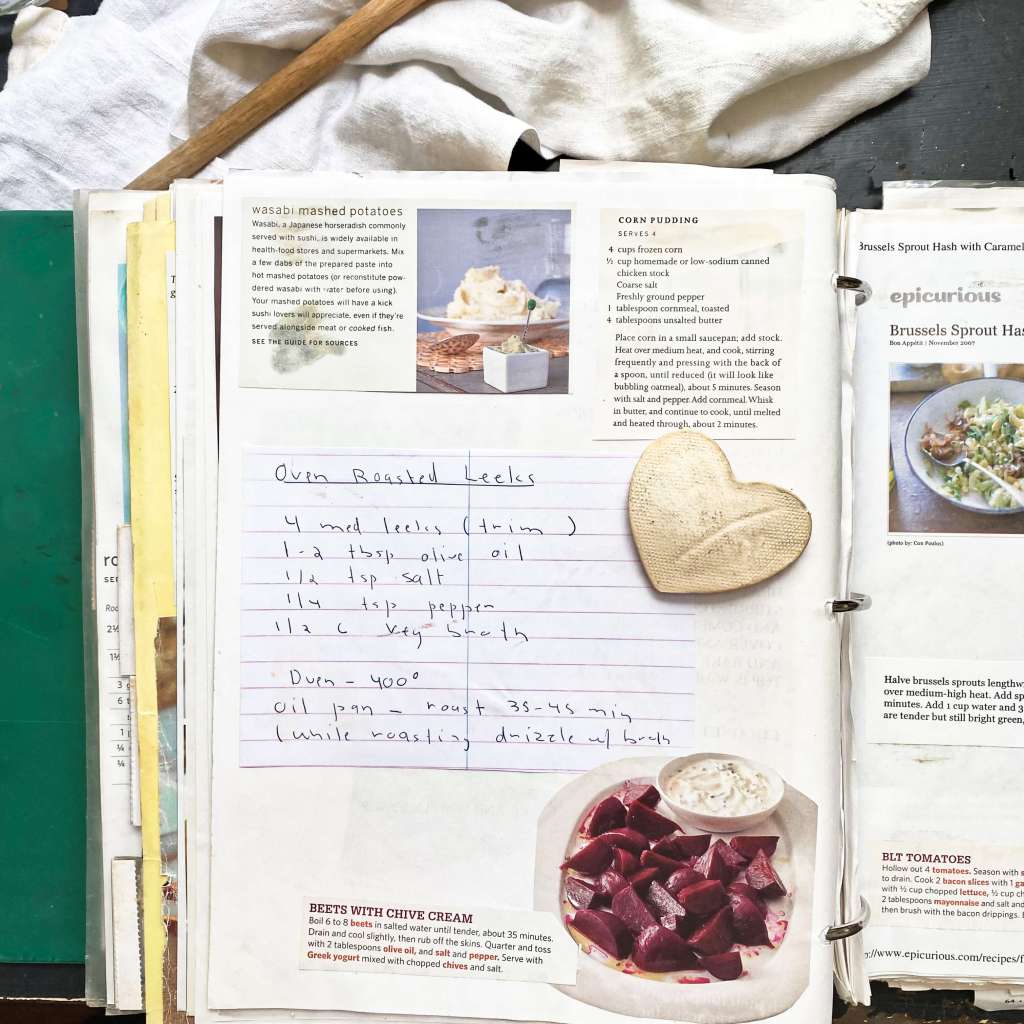 wasabi mashed potatoes
Wasabi, a Japanese horseradish commonly
served with sushi, is widely available in
health-food stores and supermarkets. Mix
a few dabs of the prepared paste into
hot mashed potatoes (or reconstitute pow-
dered wasabi with water before using).
Your mashed potatoes will have a kick
sushi lovers will appreciate, even if they're
served alongside meat or cooked fish.
SEE THE GUIDE FOR SOURCES
CORN PUDDING
SERVES 4
4 cups frozen corn
½ cup homemade or low-sodium canned
chicken stock
Coarse salt
Freshly ground pepper
1 tablespoon cornmeal, toasted
4 tablespoons unsalted butter
Place corn in a small saucepan; add stock.
Heat over medium heat, and cook, stirring
frequently and pressing with the back of
a spoon, until reduced (it will look like
bubbling oatmeal), about 5 minutes. Season
with salt and pepper. Add cornmeal. Whisk
in butter, and continue to cook, until melted
and heated through, about 2 minutes.
Oven Roasted Leeks
4 med leeks (trim)
1-2 tbsp olive oil
1/2 tsp salt
1/4 tsp pepper
1/2 c veg broth
Oven - 400°
oil pan - roast 35-45 min
(while roasting drizzle w/ broth
BEETS WITH CHIVE CREAM
Boil 6 to 8 beets in salted water until tender, about 35 minutes.
Drain and cool slightly, then rub off the skins. Quarter and toss
with 2 tablespoons olive oil, and salt and pepper. Serve with
Greek yogurt mixed with chopped chives and salt.
Brussels Sprout Hash with Caramel
epicurious
Brussels Sprout Has
Bon Appétit | November 2007
(photo by: Con Poulos)
Halve brussels sprouts lengthw
over medium-high heat. Add sp
minutes. Add 1 cup water and 3
are tender but still bright green,
BLT TOMATOES
Hollow out 4 tomatoes. Season with s
to drain. Cook 2 bacon slices with 1 ga
with ½ cup chopped lettuce, ½ cup ch
2 tablespoons mayonnaise and salt and
then brush with the bacon drippings.
://www.epicurious.com/recipes/f